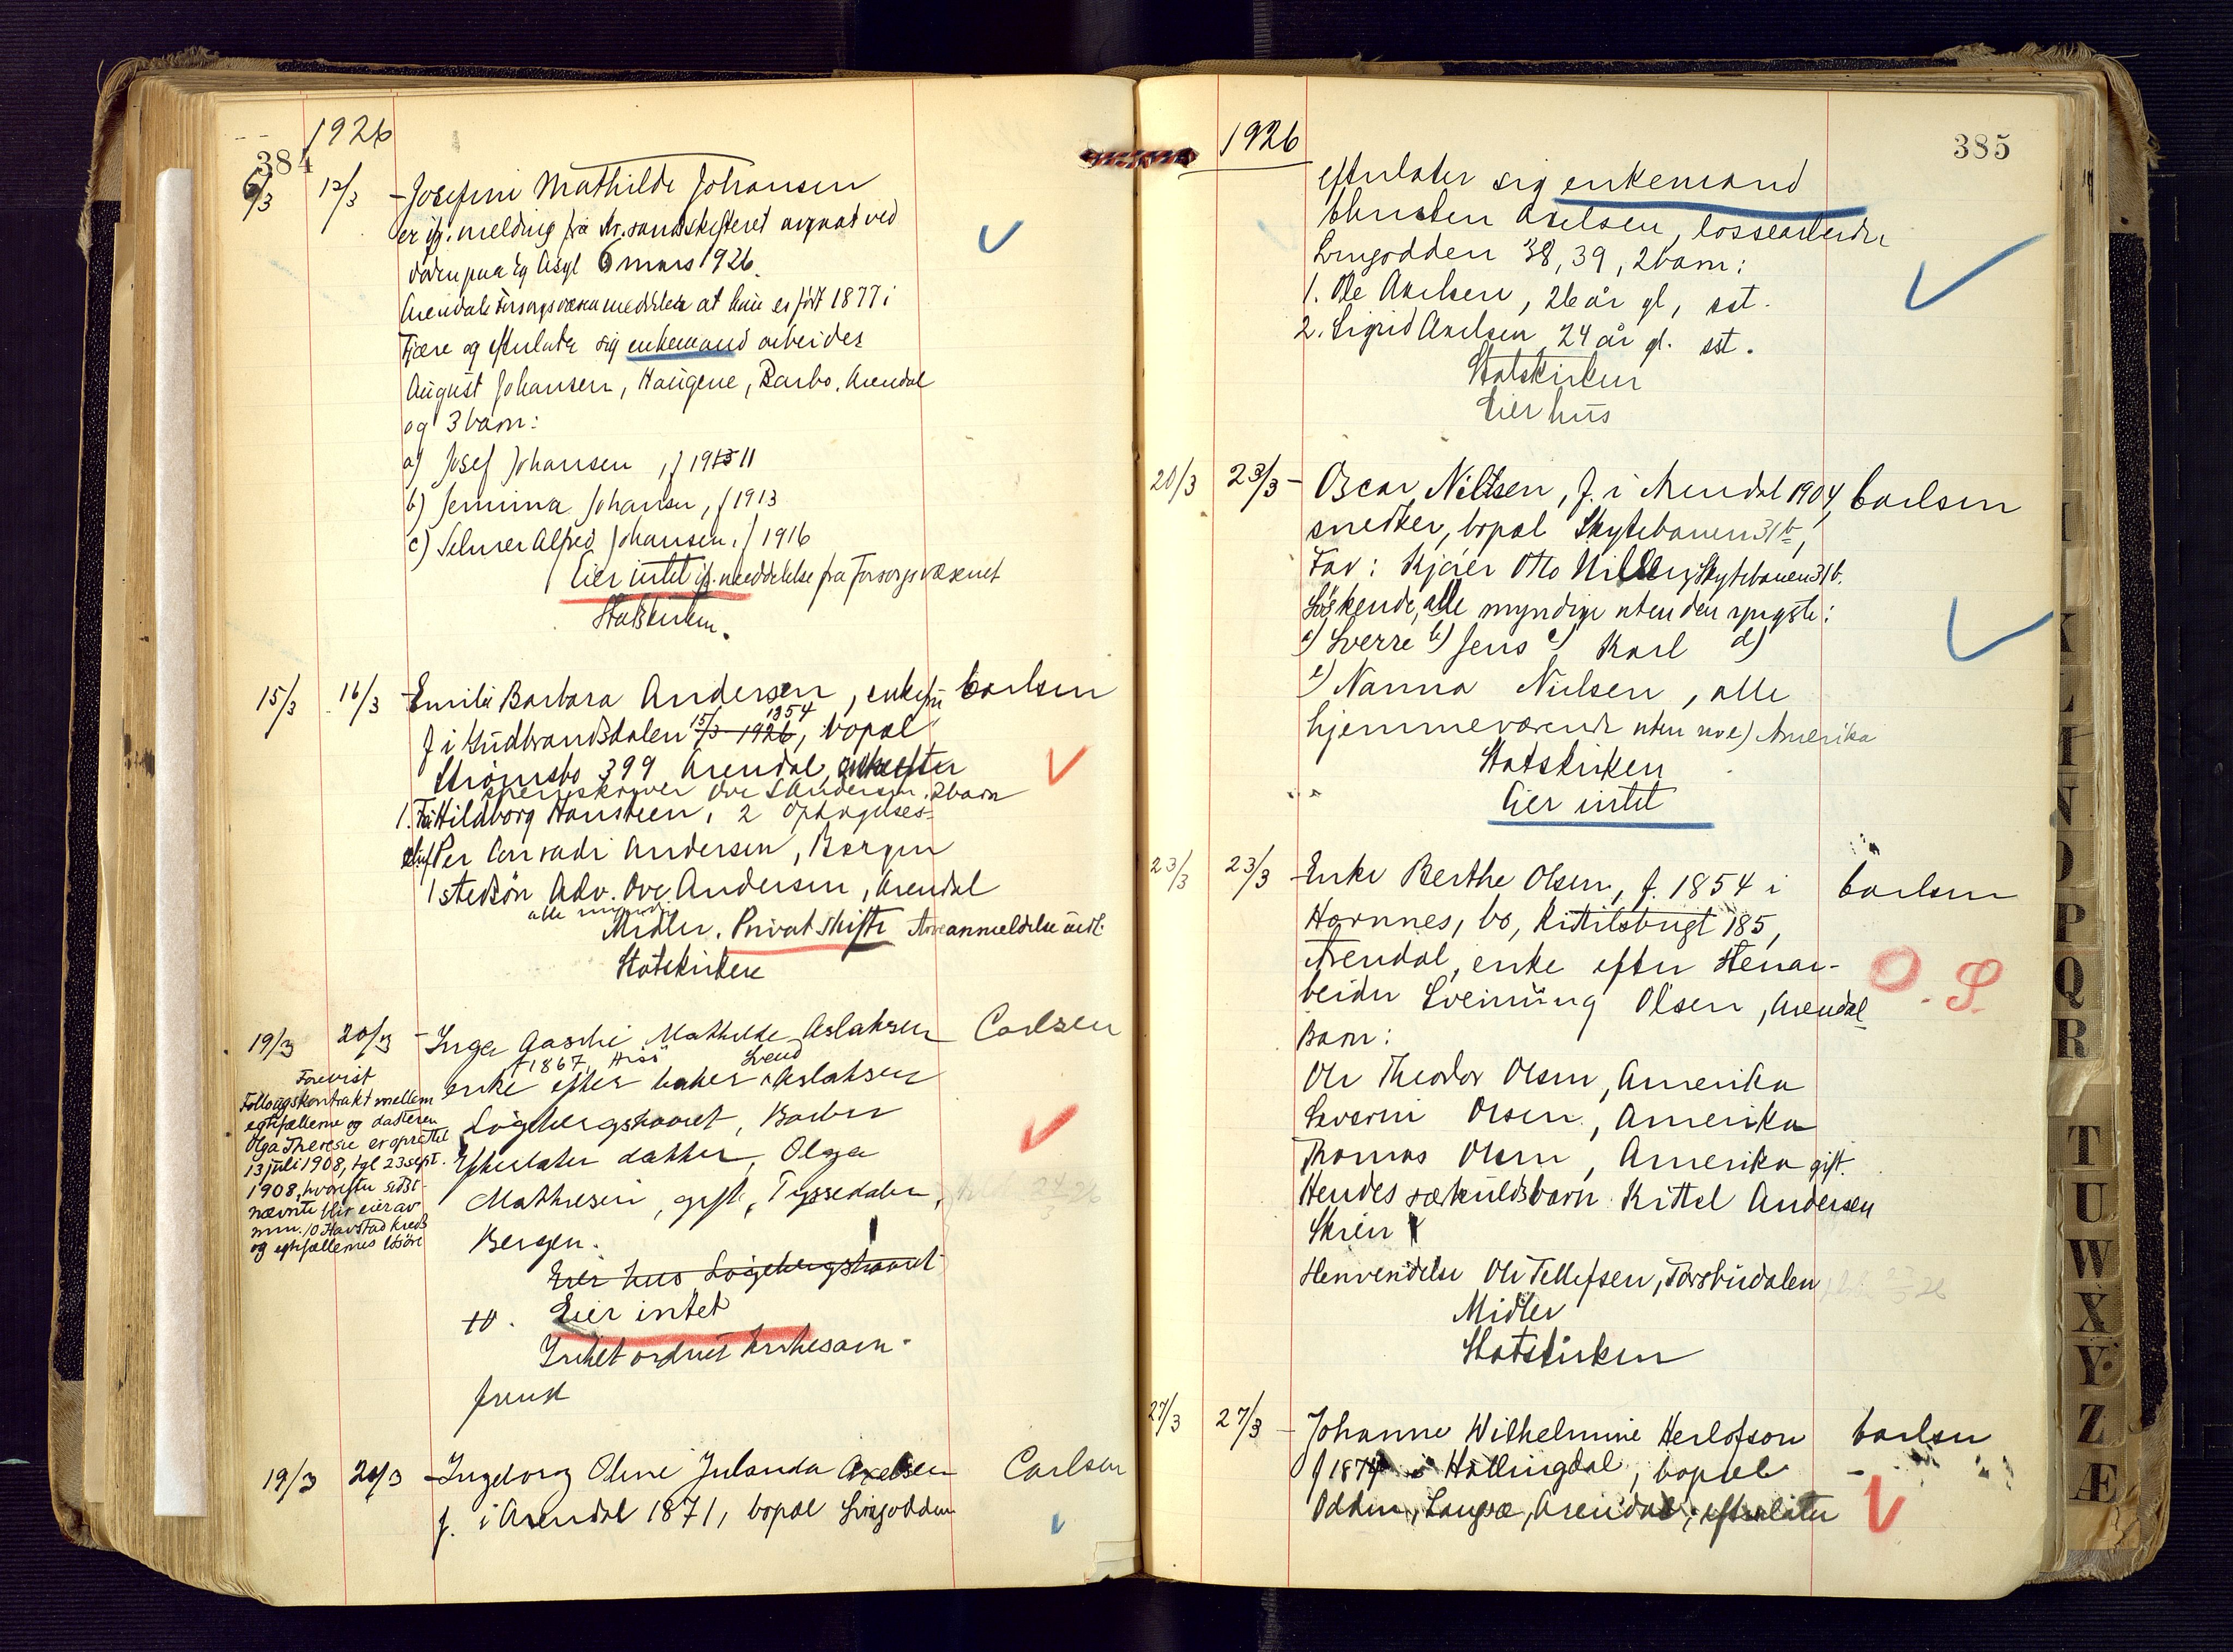 1926
384
6/3 12/3 - Josefine Mathilde Johansen
er ifg. melding fra Kr.sands skifteret avgaat ved
døden paa Eg Asyl 6 mars 1926.
Arendals Forsorgsvæsen meddeler at hun er født 1877 i
Fjære og efterlater sig enkemand arbeider
August Johansen, Haugene, Barbo, Arendal
og 3 barn:
a) Josef Johansen, f 1911
b) Jemima Johansen, f 1913
c) Selmer Alfred Johansen, f 1916
Eier intet ifg. meddelelse fra Forsorgsvæsenet
Statskirken.
15/3 16/3 - Emilie Barbara Andersen, enkefru Carlsen
f i Gudbrandsdalen 15/3 1926 1854, bopæl
Strømsbo 399 Arendal, enke efter
Ove Andersen. 2 barn
1. Fru Hildborg Hansteen, 2 Opsynsses-
chef Per Conradi Andersen, Bergen
1 stedsøn Adv. Ove Andersen, Arendal
alle myndige
Midler. Privat skifte Arveanmeldelse utdl.
Statskirken
19/3 20/3 - Inga Aasthe Mathilde Aslaksen Carlsen
f 1867, Hisö Svend
enke efter baker Aslaksen
Løgebergskaaret, Barbu
Efterlater datter, Olga
Mathiesen, gift, Tyssedalen,
Bergen.
Eier hus Løgebergskaaret
Eier intet
Intet ordnet trossam-
fund
Forevist
Føllougskontrakt mellem
egtefællerne og datteren
Olga Therese er oprettet
13 juli 1908, tgl 23 sept.
1908, hvorefter sidst-
nævnte blir eier av
mnr. 10 Havstad kreds
og egtefællernes løsøre
19/3 20/3 - Ingeborg Oline Julanda Axelsen Carlsen
f. i Arendal 1871, bopæl Lingodden
1926
385
efterlater sig enkemand
Christen Axelsen, lossearbeider
Lingodden 38, 39, 2 barn:
1. Ole Axelsen, 26 år gl, sst.
2. Sigrid Axelsen 24 år gl. sst.
Statskirken
Eier hus
20/3 23/3 - Oscar Nilsen, f. i Arendal 1904, Carlsen
snedker, bopæl Skytebanen 31 b,
Far: Kjører Otto Nilsen, Skytebanen 31 b.
Søskende, alle myndige uten den yngste:
a) Sverre b) Jens c) Karl d)
e) Nanna Nielsen, alle
hjemmeværende uten no e) Amerika
Statskirken
Eier intet
23/3 23/3 - Enke Berthe Olsen, f. 1854 i Carlsen
Hornnes, bo, Kittilsbugt 185,
Arendal, enke efter Stenar-
beider Sveinung Olsen, Arendal
Barn:
Ole Theodor Olsen, Amerika
Severin Olsen, Amerika
Thomas Olsen, Amerika gift.
Hendes særkuldsbarn Kittel Andersen
Skrein
Henvendelse Ole Tellefsen, Torsbudalen
Midler
Statskirken
27/3 27/3 - Johanne Wilhelmine Herlofson Carlsen
f 1874 i Hallingdal, bopæl
Odden, Langsæ, Arendal, efterlater
K
L
N
O
P
Q
R
T
U
W
X
Y
Z
Æ